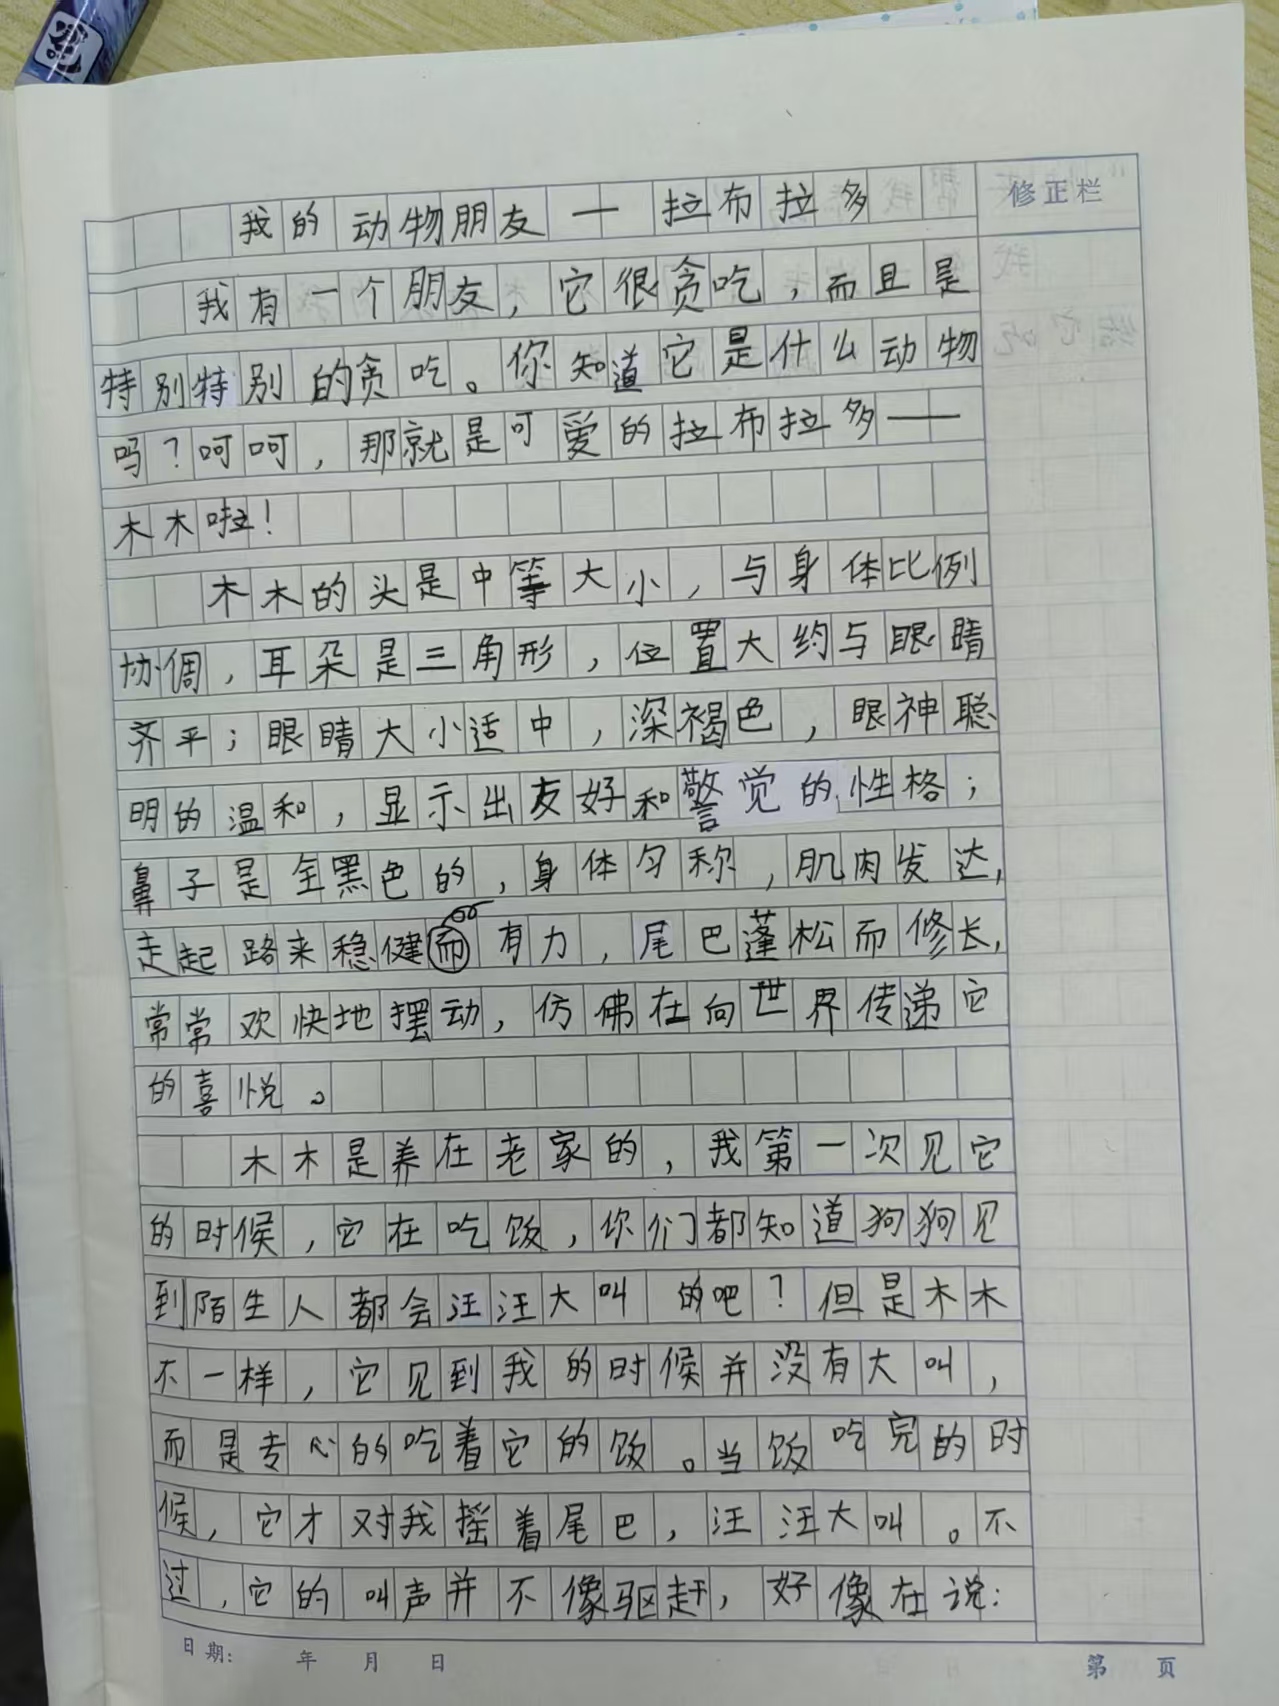 修正栏
我的动物朋友—拉布拉多
我有一个朋友，它很贪吃，而且是
特别特别的贪吃。你知道它是什么动物
吗？呵呵，那就是可爱的拉布拉多——
木木啦！
木木的头是中等大小，与身体比例
协调，耳朵是三角形，位置大约与眼睛
齐平；眼睛大小适中，深褐色，眼神聪
明的温和，显示出友好和警觉的性格；
鼻子是全黑色的，身体匀称，肌肉发达，
走起路来稳健而有力，尾巴蓬松而修长，
常常欢快地摆动，仿佛在向世界传递它
的喜悦。
木木是养在老家的，我第一次见它
的时候，它在吃饭，你们都知道狗狗见
到陌生人都会汪汪大叫的吧？但是木木
不一样，它见到我的时候并没有大叫，
而是专心的吃着它的饭。当饭吃完的时
候，它才对我摇着尾巴，汪汪大叫。不
过，它的叫声并不像驱赶，好像在说：
日期： 年 月 日
第 页